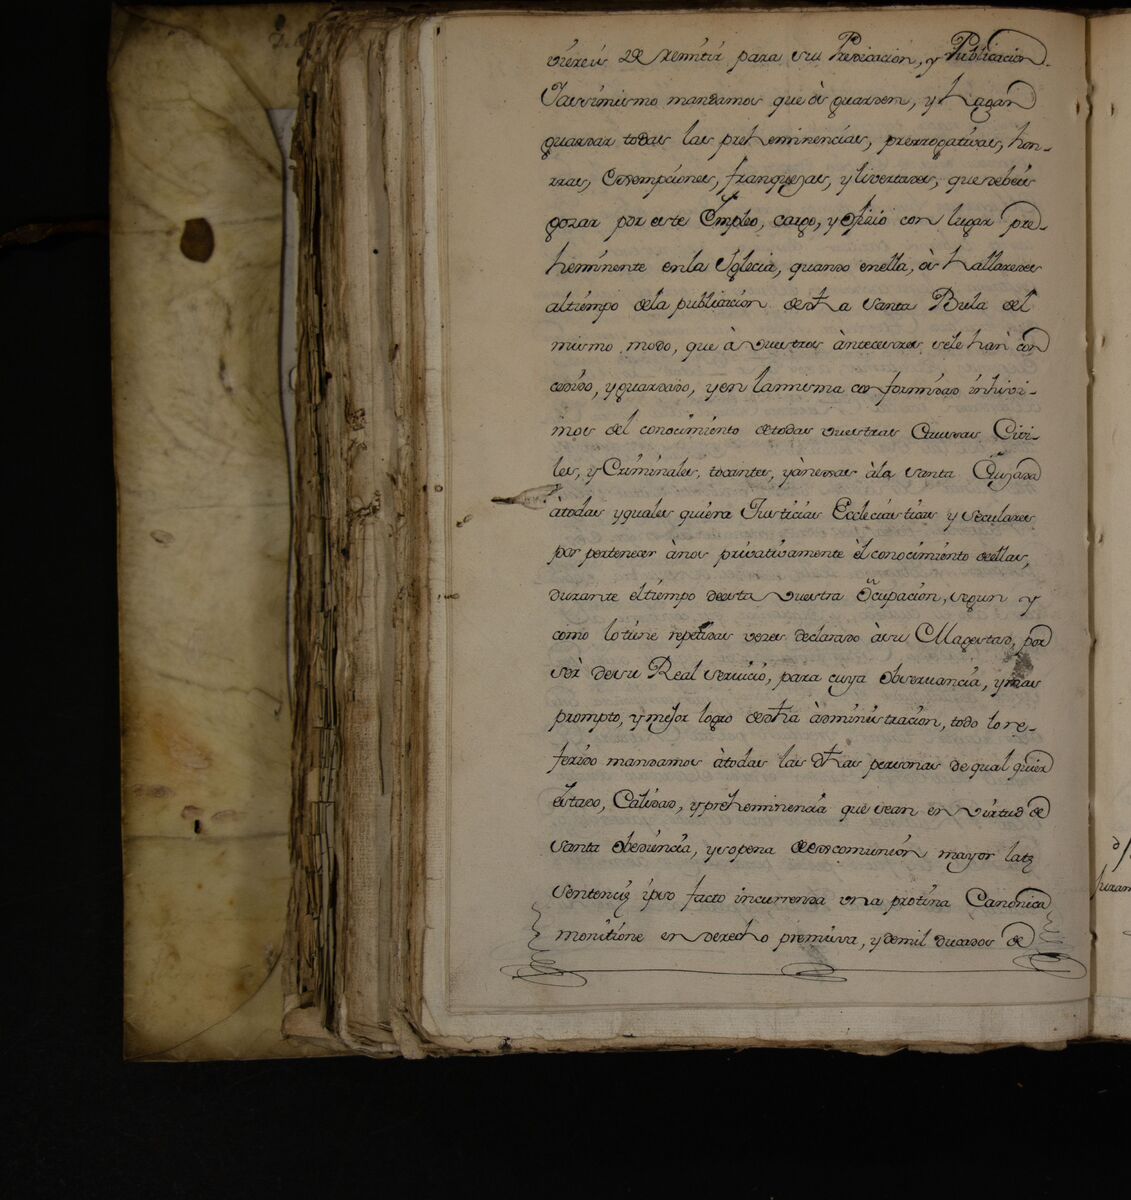 viereis de remitir para su Predicacion, y Publicacion.
Iassimismo mandamos que ôs guarden, y hagan
guardar todas las preheminencias, prerrogativas, hon-
rras, Exsempciones, franquezas, y livertades, que debeis
gozar por este Empleo, cargo, y ofizio con lugar pre-
heminente enla Iglecia, quando enella, ôs hallaredes
altiempo dela publicacion desta santa Bula del
mismo modo, que à vuestros àntecesores sele han con
cedido, y guardado, y en lamisma conformidad inhivi-
mos del conocimiento detodas vuestras Causas Civi-
les, y Criminales, tocantes, yànexas àla santa Cruzada
àtodas yquales quiera Iusticias Ecclesiasticas y seculares
por pertenecer ànos privativamente èl conocimiento deellas,
durante eltiempo deesta vuestra Ocupacion, segun y
como lotiene repetidas vezes declarado àsu Magestad, por
sèr desu Real servicio, para cuya observancia, y mas
prompto, y mejor logro desta àdministracion, todo lo re-
ferido mandamos àtodas las dhas personas de qual quier
estado, Calidad, y preheminencia que sean en virtud de
santa obediencia, ysopena deexcomunion mayor latę
sentencię ipso facto incurrenda una protina Canonica
monitione en derecho premissa, y demil ducados de
juram